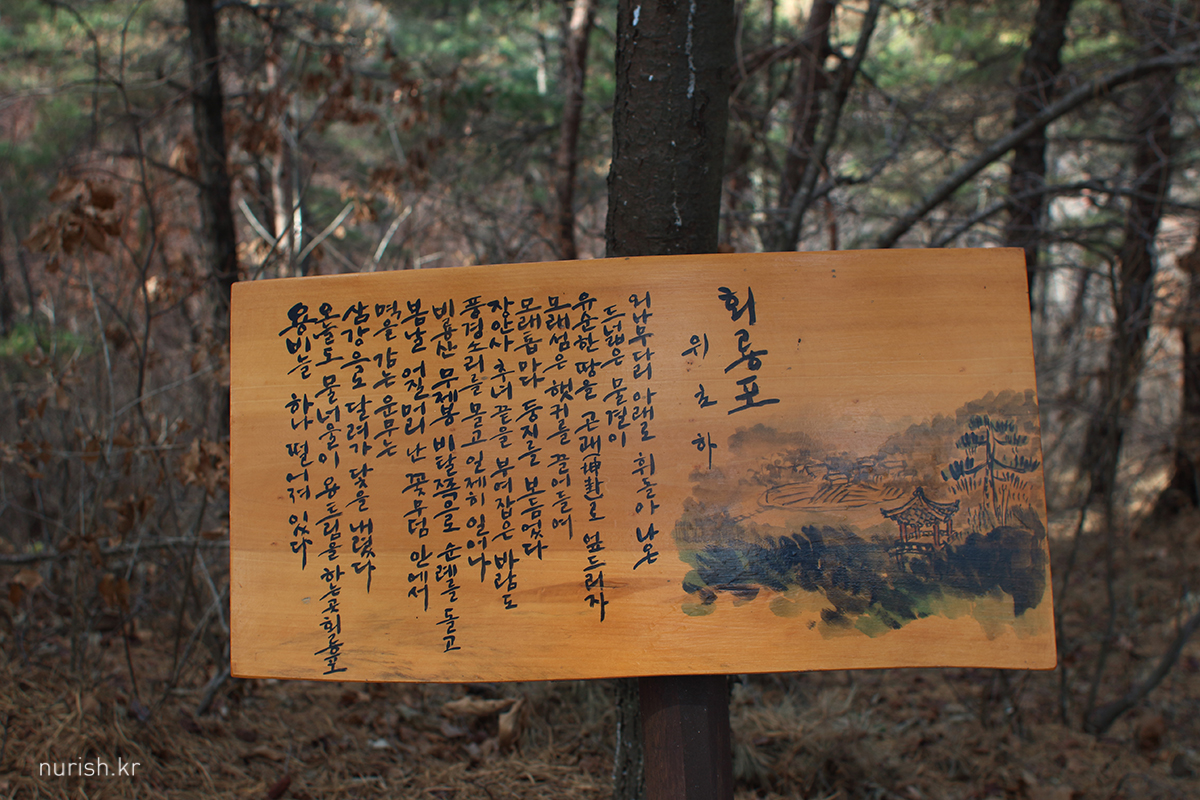 회룡포
위초하
외나무다리 아래로 휘돌아 나온
드넓은 물결이
유순한 땅을 곤괘(坤卦)로 엎드리자
모래섬은 햇귀를 끌어들여
모래톱마다 둥지를 보듬었다
장안사 추녀 끝을 부여잡은 바람도
풍경소리를 몰고 일제히 일어나
비룡산 무제봉 비탈쪽으로 순례를 돌고
봄날 어질머리 난 꽃무덤 안에서
멱을 감는 운무는
삼강을 달려가 닻을 내렸다
오늘도 물너울이 용트림을 하는곳 회룡포
용비늘 하나 떨어져 있다
nurish.kr